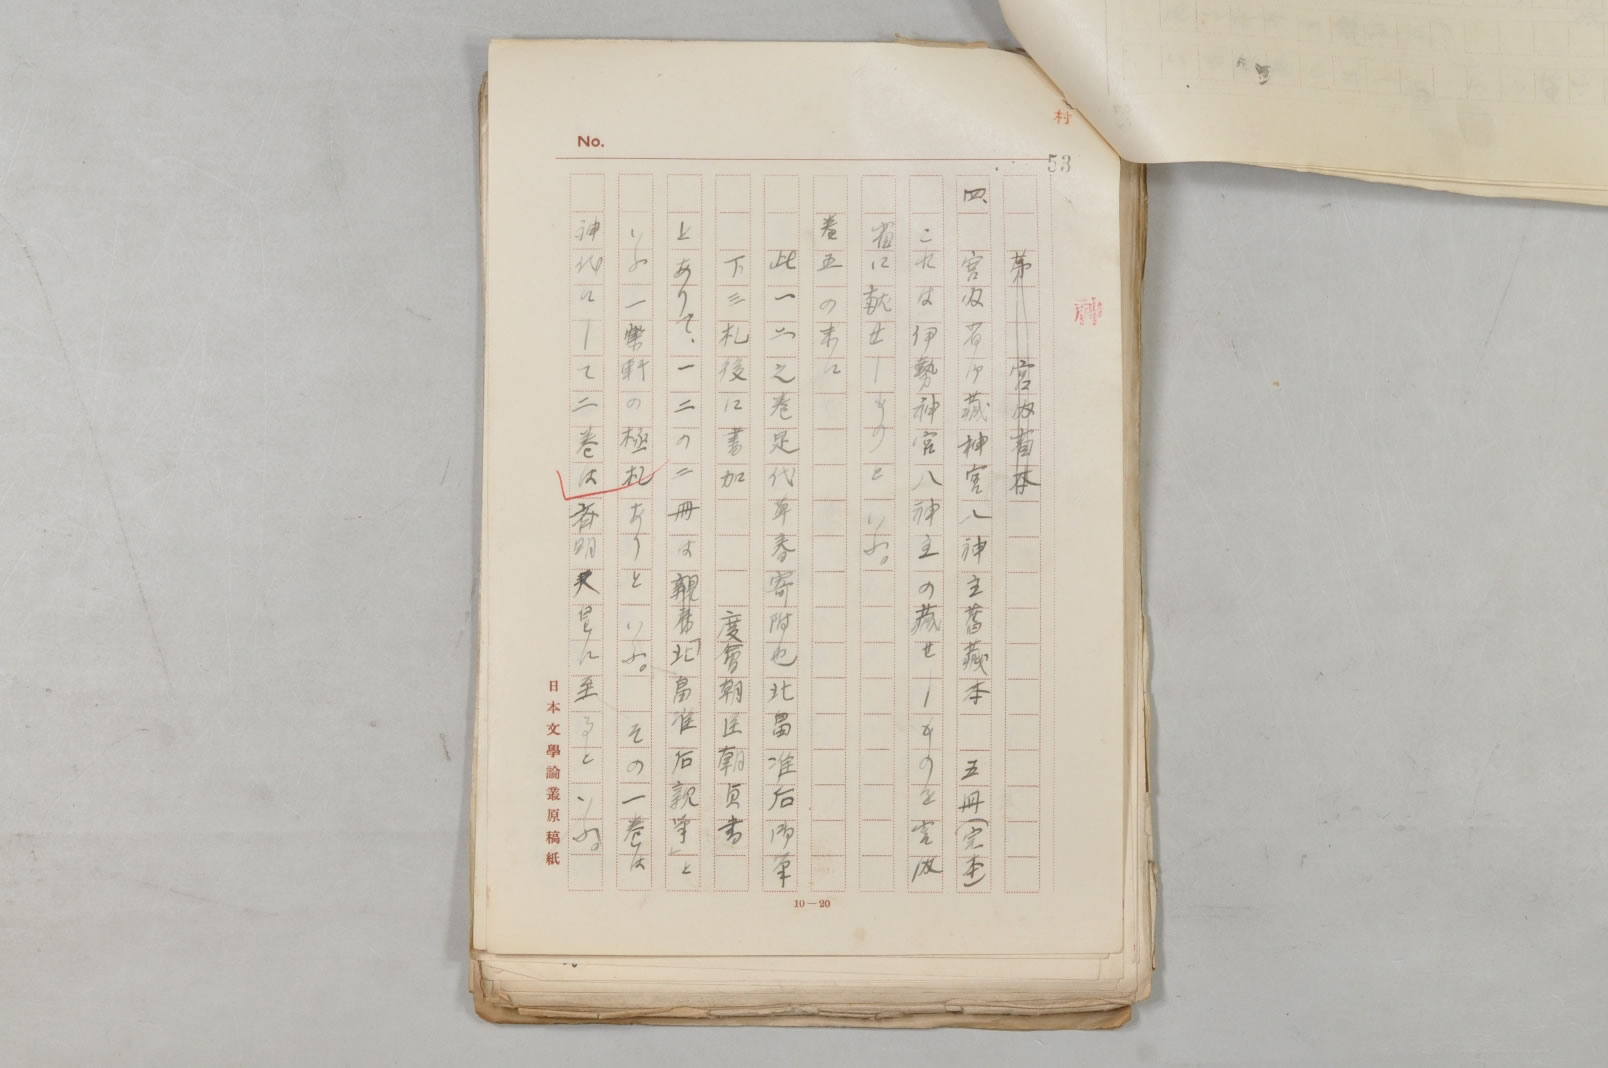 No.
村
53
第 宮内省本
四、宮内省御蔵神宮八神主舊蔵本 五冊(完本)
これは伊勢神宮八神主の蔵せしものを宮内
省に献せしものといふ。
巻五の末に
此一二之巻足代草春寄附也北畠准后御筆
下三札後に書加 度會朝臣朝貞書
とありて、一二の二冊は親房「北畠准后親筆」と
いふ一樂軒の極札ありといふ。その一巻は
神代にして二巻は齊明天皇に至るといふ。
10—20
日本文學論叢原稿紙